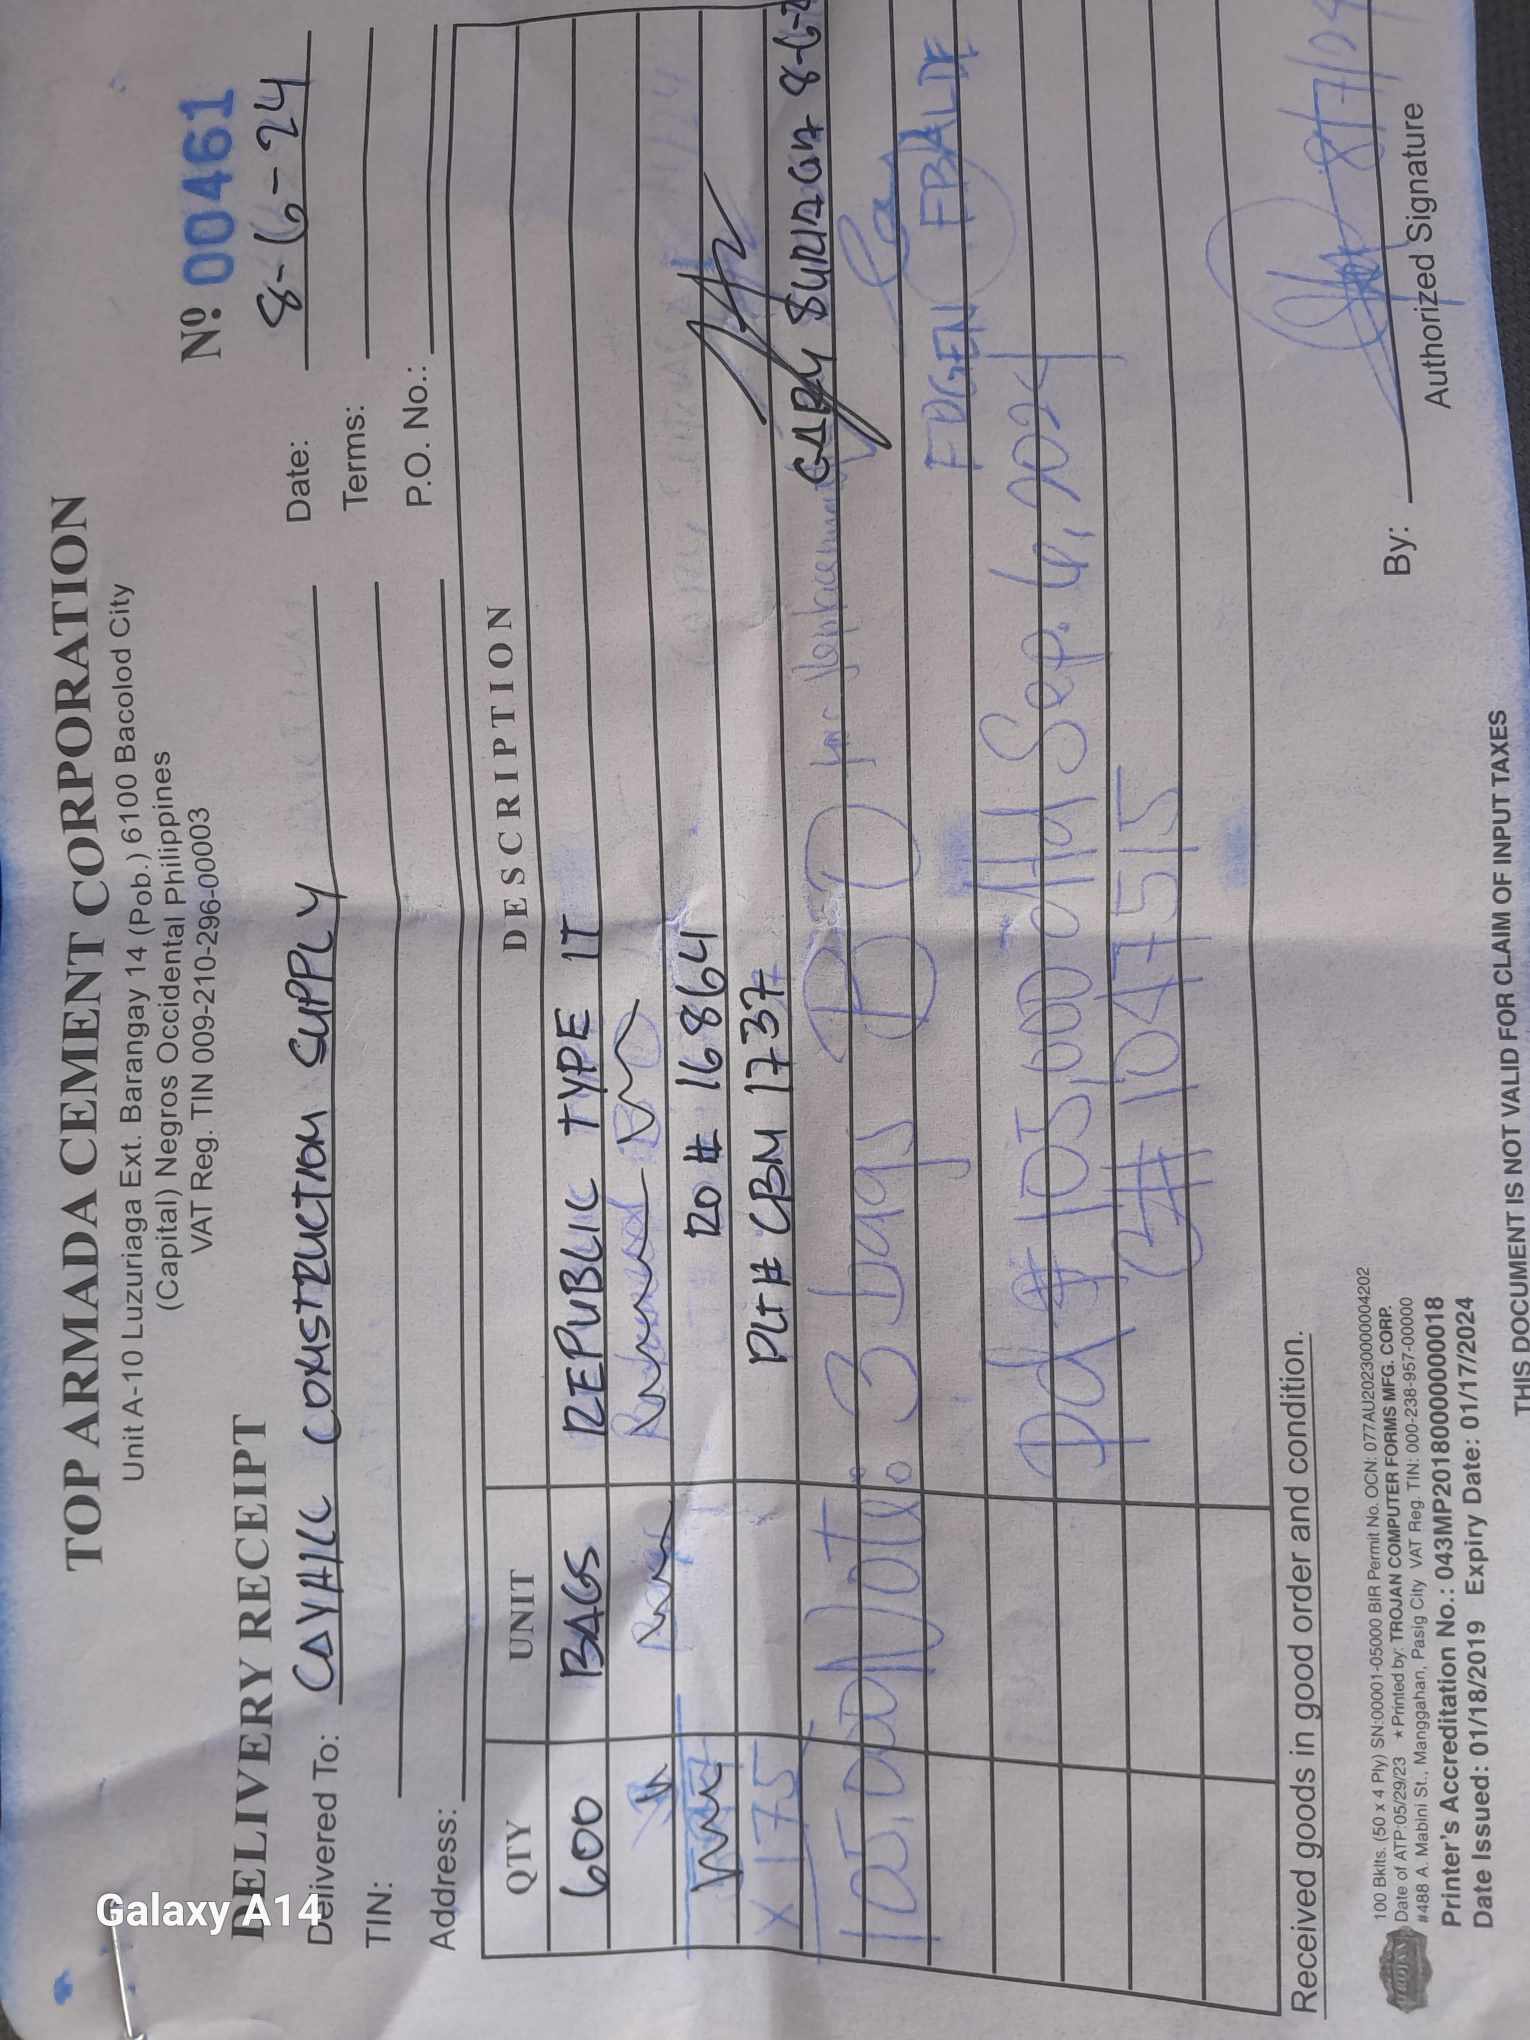 TOP ARMADA CEMENT CORPORATION
Unit A-10 Luzuriaga Ext. Barangay 14 (Pob.) 6100 Bacolod City
(Capital) Negros Occidental Philippines
VAT Reg. TIN 009-210-296-00003
DELIVERY RECEIPT
Nº 00461
Delivered To: CAYHILL CONSTRUCTION SUPPLY
Date: 8-6-24
TIN:
Terms:
Address:
P.O. No.:
QTY UNIT DESCRIPTION
600 BAGS REPUBLIC TYPE 1T
RO # 16864
PLT# CBM 1737
x 175
GARY 8-6-2
105,000 Note: 3 bags BO for replacement
EDGEN
Pd # 105,000 dtd Sep. 6, 2024
(# 1047515
8/7/24
Received goods in good order and condition.
By:
Authorized Signature
100 Bklts. (50 x 4 Ply) SN:00001-05000 BIR Permit No. OCN: 077AU20230000004202
Date of ATP:05/29/23 ★ Printed by: TROJAN COMPUTER FORMS MFG. CORP.
#488 A. Mabini St., Manggahan, Pasig City VAT Reg. TIN: 000-238-957-00000
Printer's Accreditation No.: 043MP20180000000018
Date Issued: 01/18/2019 Expiry Date: 01/17/2024
THIS DOCUMENT IS NOT VALID FOR CLAIM OF INPUT TAXES
TROJAN
Galaxy A14